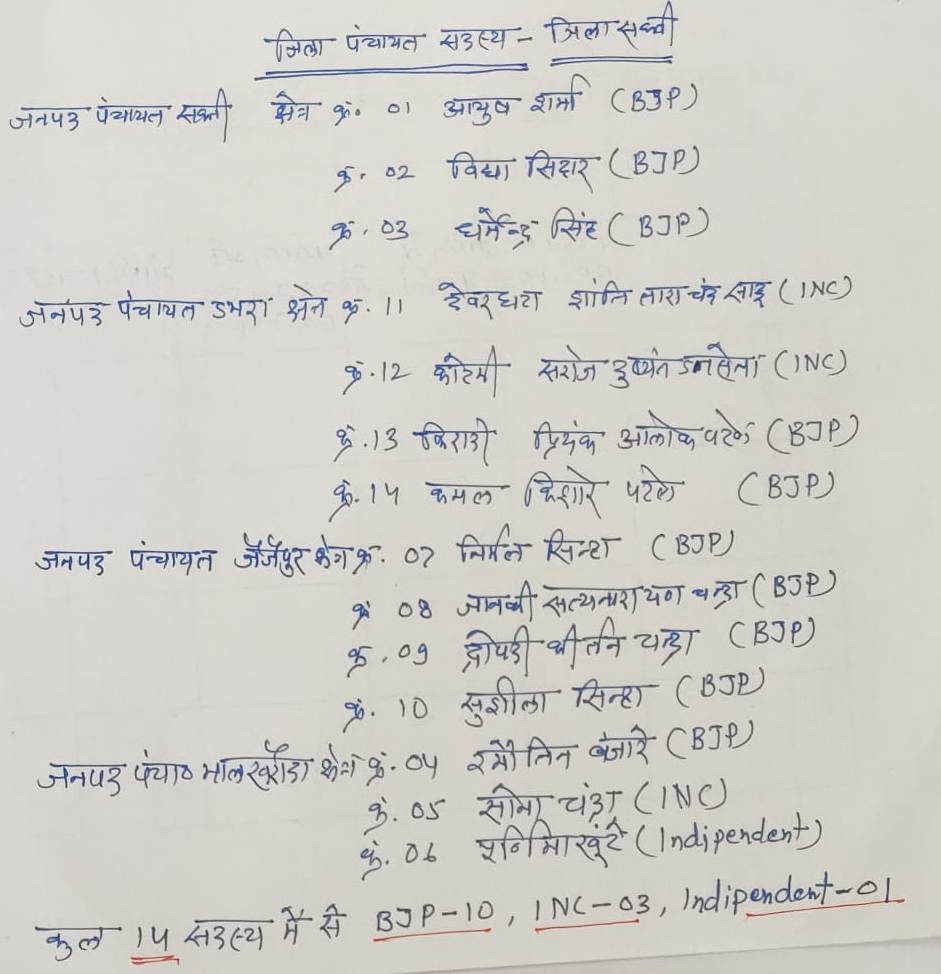 जिला पंचायत सदस्य - जिला सक्ती
जनपद पंचायत सक्ती क्षेत्र क्रं. 01 आयुष शर्मा (BJP)
क्रं. 02 विद्या सिदार (BJP)
क्रं. 03 धर्मेन्द्र सिंह (BJP)
जनपद पंचायत डभरा क्षेत्र क्रं. 11 देवरघटा शांति तारा चंद साहू (INC)
क्रं. 12 कोटमी सरोज दुष्यंत (INC)
क्रं. 13 किरारी प्रियंक आलोक पटेल (BJP)
क्रं. 14 कमल किशोर पटेल (BJP)
जनपद पंचायत जैजैपुर क्षेत्र क्रं. 07 निर्मल सिन्हा (BJP)
क्रं 08 सत्यनारायण चन्द्रा (BJP)
क्रं. 09 द्रोपदी कीर्तन चन्द्रा (BJP)
क्रं. 10 सुशीला सिन्हा (BJP)
जनपद पंचा० मालखरौदा क्षेत्र क्रं. 04 बंजारे (BJP)
क्रं. 05 चंद्रा (INC)
क्रं. 06 (Indipendent)
कुल 14 सदस्य में से BJP-10, INC-03, Indipendent-01